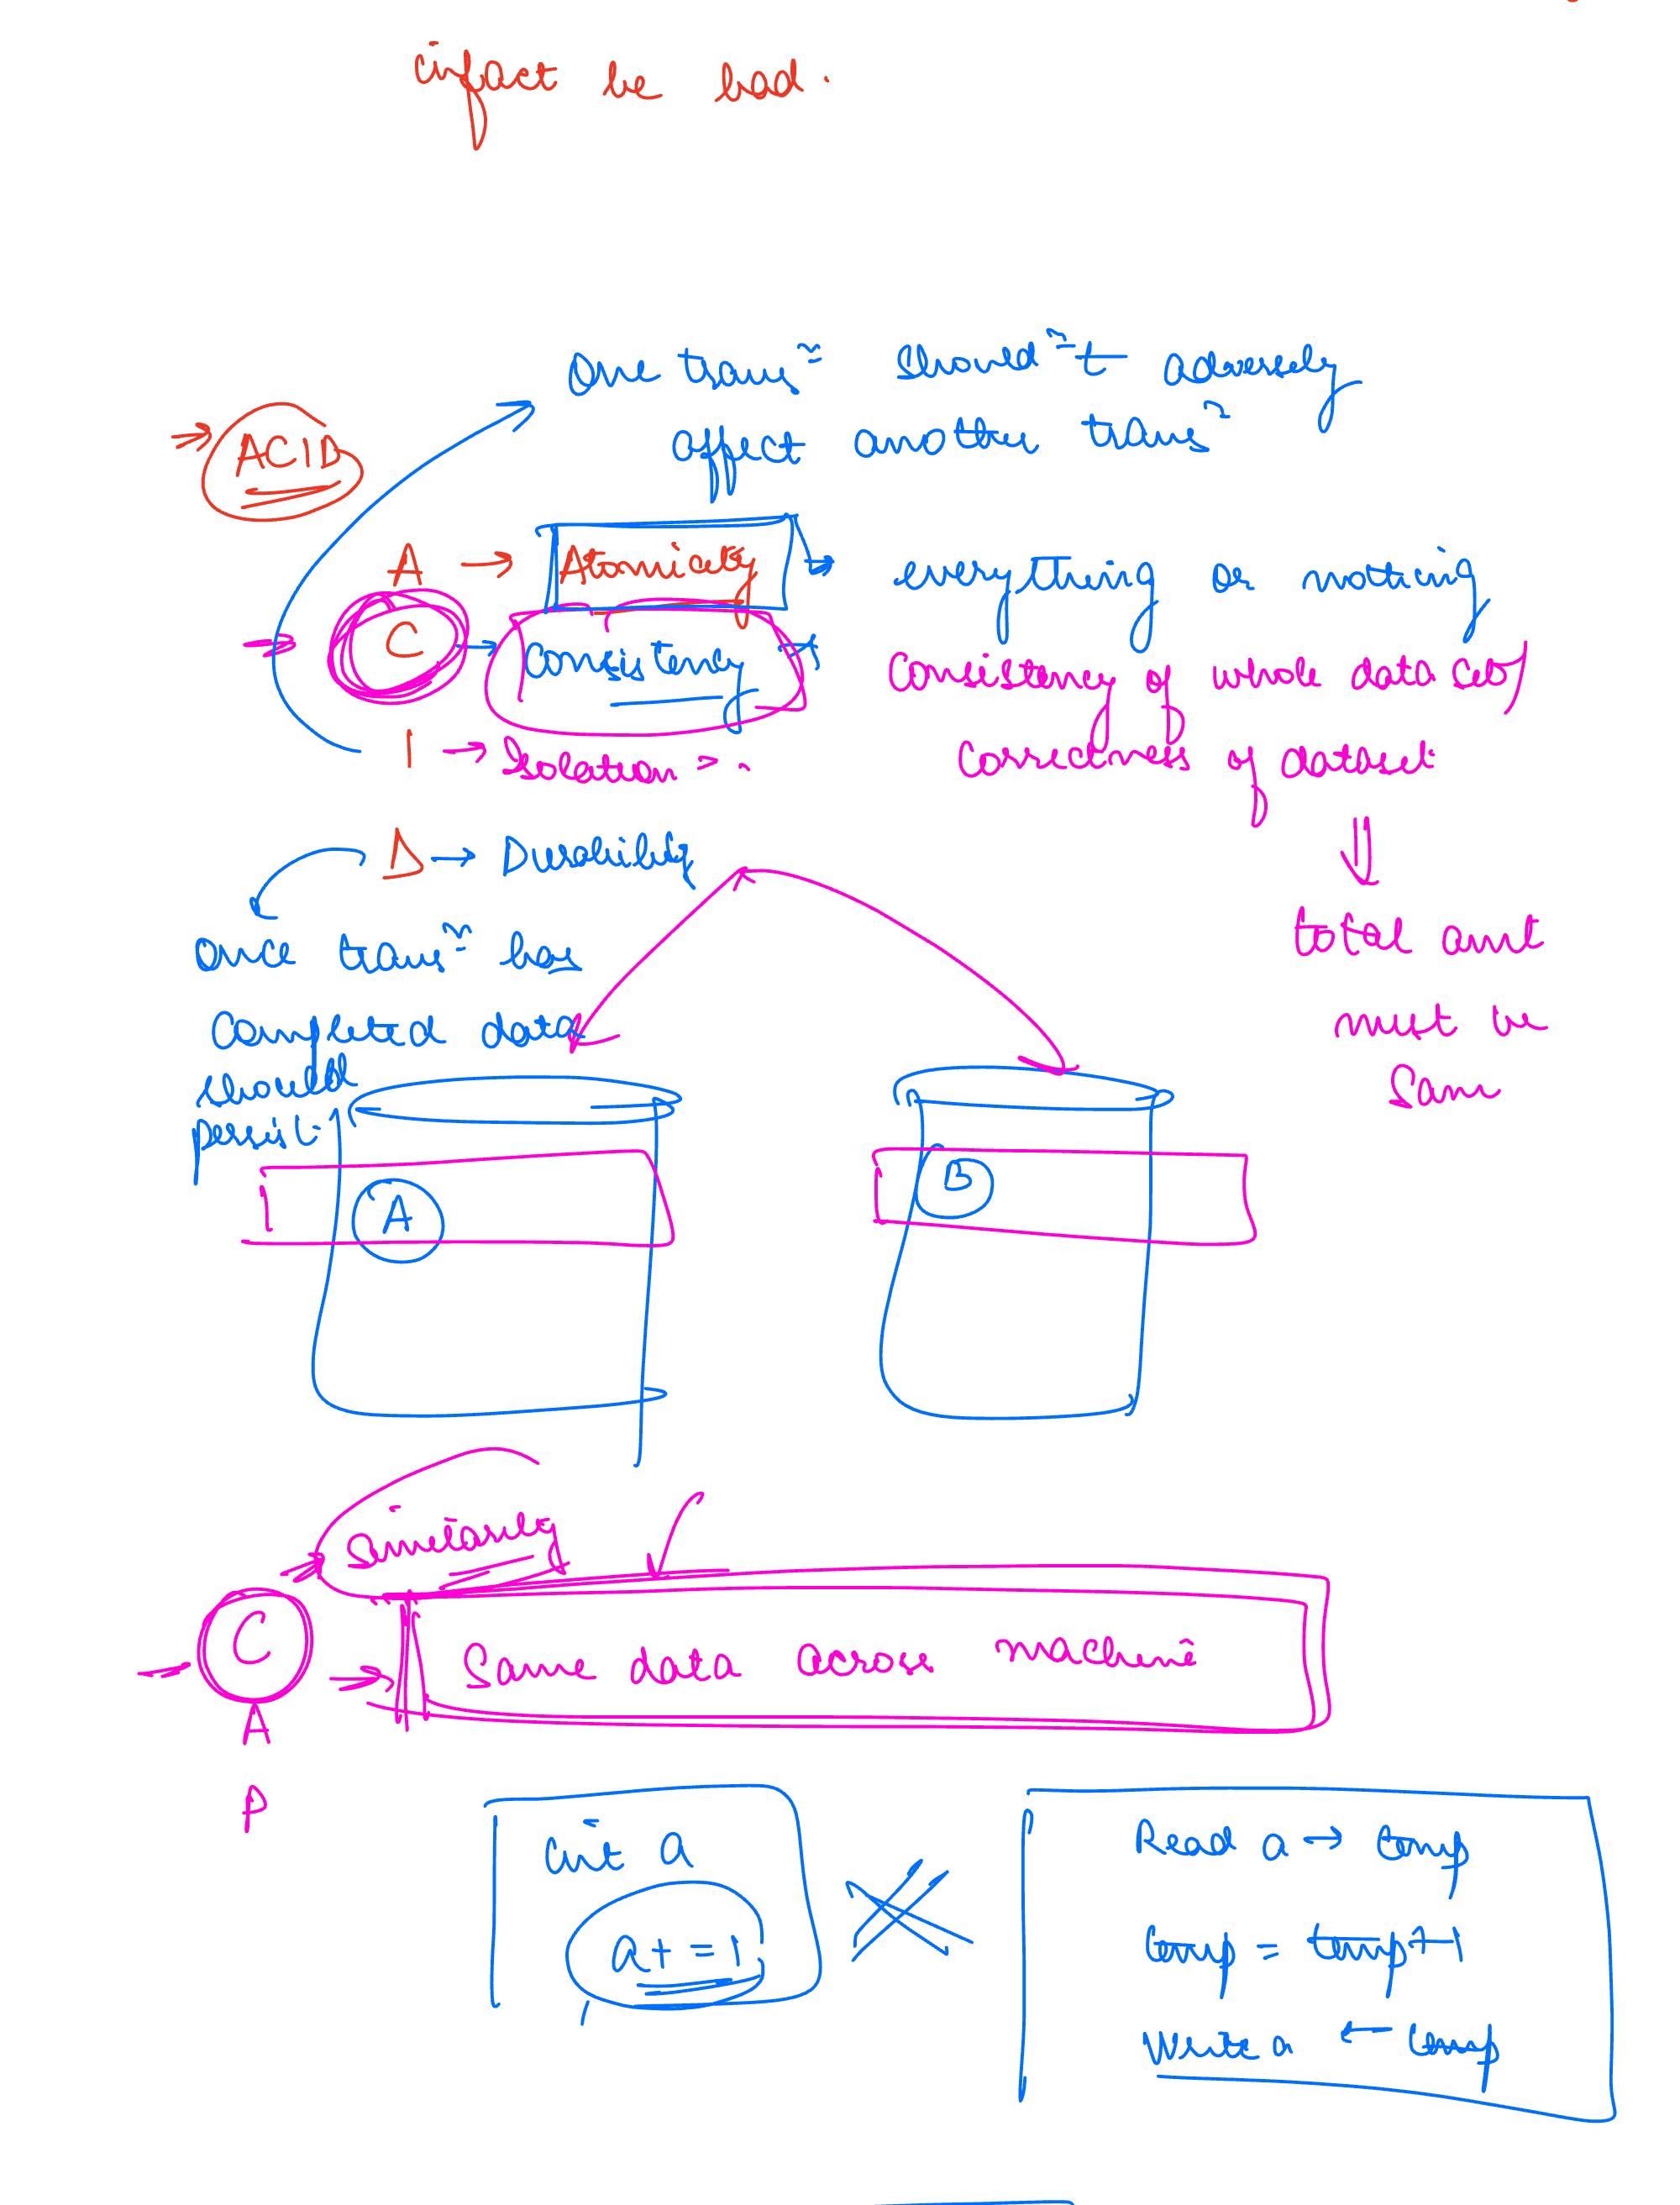 infact be bad.
One trans^n should^n't adversely
affect another trans^n
ACID
A → Atomicity → everything or nothing
C → Consistency → Consistency of whole data set)
correctness of dataset.
I → Isolation
D → Durability
total amt
must be
Sam
Once trans^n has
completed data
should
persist.
A
B
Similarity
C
Same data across machine
A
P
int a
a+=1
Read a → temp
temp = temp+1
Write a ← temp